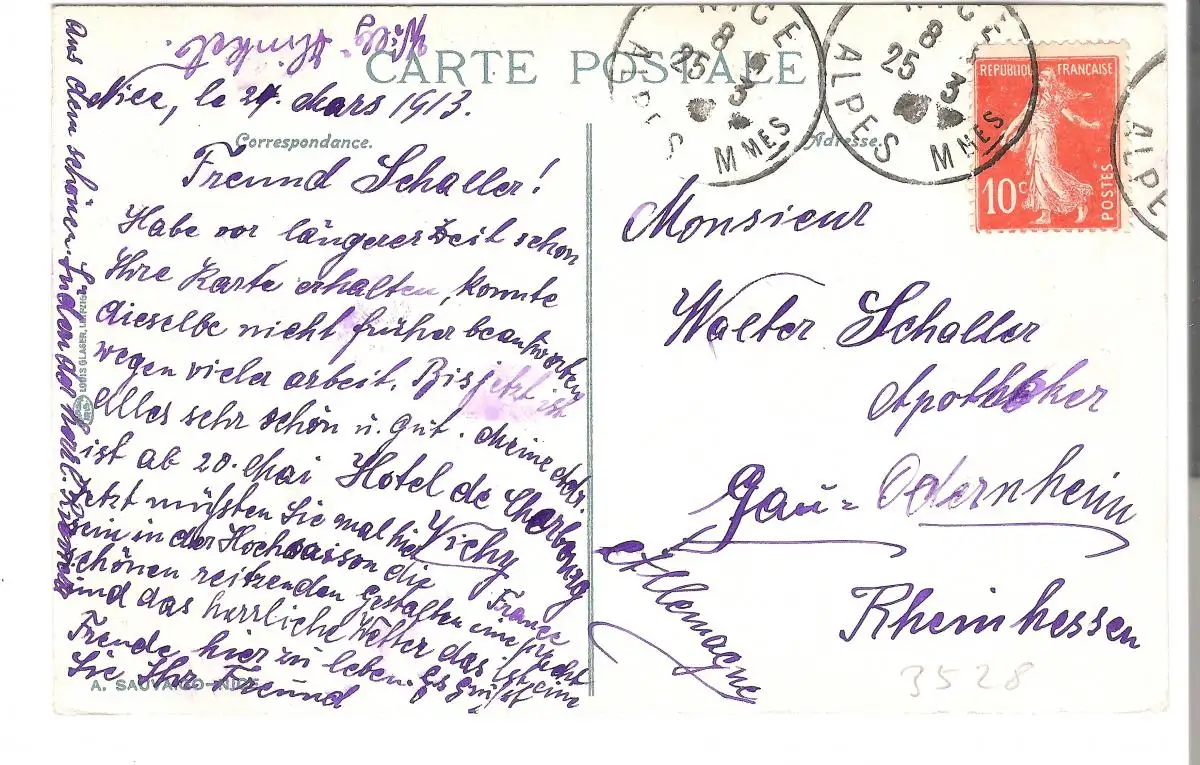 CARTE POSTALE
Willy Hinkel.
Nice, le 24. Mars 1913.
Correspondance.
Adresse.
Freund Schaller!
Habe vor längerer Zeit schon
Ihre Karte erhalten, konnte
dieselbe nicht früher beantworten
wegen vieler arbeit. Bis jetzt ist
alles sehr schön u. gut. Meine Adr.
ist ab 20. Mai Hotel de Cherbourg
Vichy
France
Jetzt müßten Sie mal hier
sein in der Hochsaison die
schönen reitzenden gestalten eine pracht
und das herrliche Wetter das ist eine
Freude hier zu leben. Es grüßt
Sie Ihr Freund
Aus dem schönen Süden der herzl.
LOUIS GLASER, LEIPZIG
A. SAUVAIGO-NICE
NICE
8
25 3
ALPES MMES
NICE
8
25 3
ALPES MMES
ALPE
REPUBLIQUE FRANÇAISE
10c
POSTES
Monsieur
Walter Schaller
Apotheker
Gau=Odernheim
Rheinhessen
Allemagne
3528